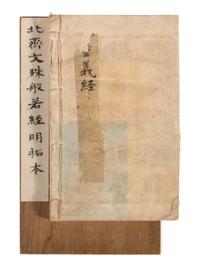 北齋文殊般若經明拓本
義經